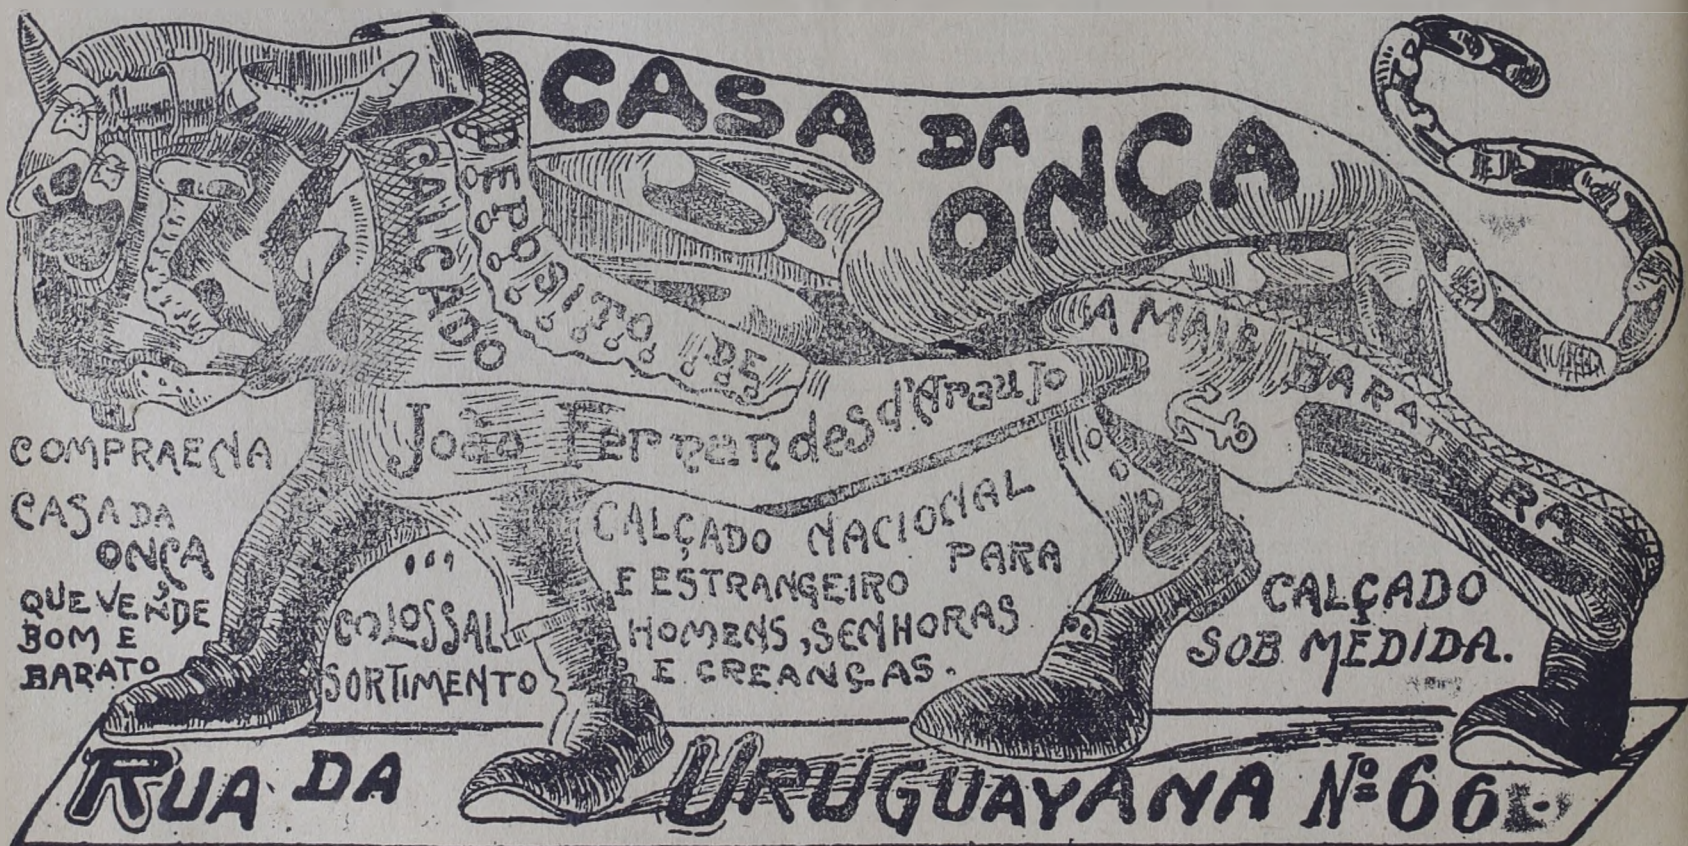 CASA DA
ONÇA
DEPOSITO DE
CALÇADO
João Fernandes d'Araujo
A MAIS BARATEIRA
COMPRAE NA
CASA DA
ONÇA
QUE VENDE
BOM E
BARATO
COLOSSAL
SORTIMENTO
CALÇADO NACIONAL
E ESTRANGEIRO PARA
HOMENS, SENHORAS
E CREANÇAS.
CALÇADO
SOB MEDIDA.
RUA DA URUGUAYANA Nº 66